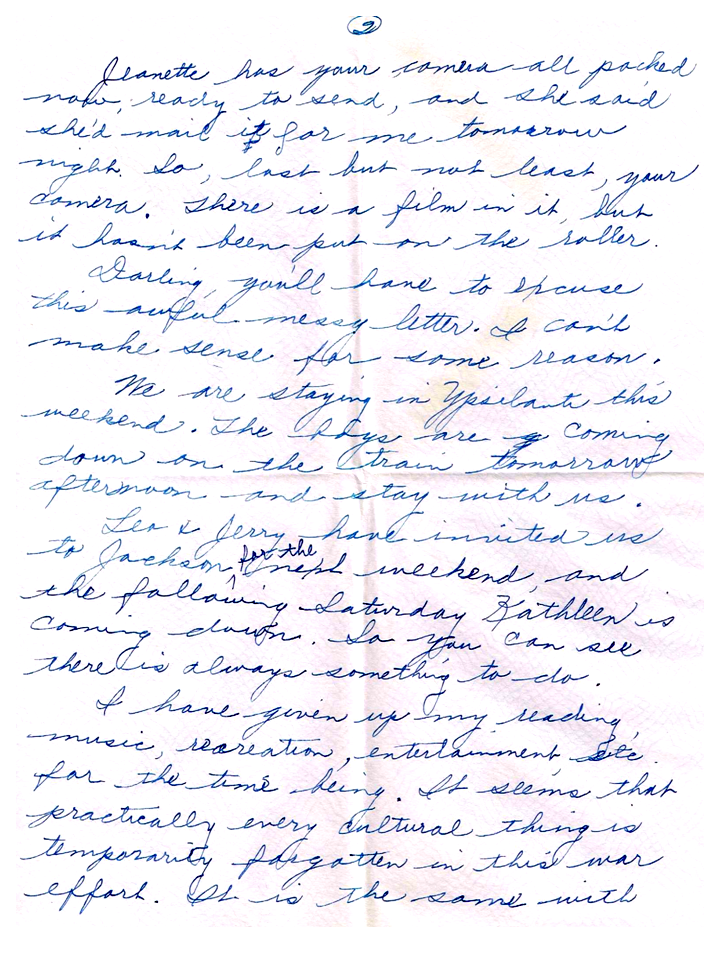 2
Jeanette has your camera all packed
now, ready to send, and she said
she'd mail it for me tomorrow
night. So, last but not least, your
camera. There is a film in it, but
it hasn't been put on the roller.
Darling, you'll have to excuse
this awful messy letter. I can't
make sense for some reason.
We are staying in Ypsilanti this
weekend. The boys are coming
down on the train tomorrow
afternoon and stay with us.
Leo & Jerry have invited us
to Jackson for the next weekend, and
the following Saturday Kathleen is
coming down. So you can see
there is always something to do.
I have given up my reading,
music, recreation, entertainment, etc.
for the time being. It seems that
practically every cultural thing is
temporarily forgotten in this war
effort. It is the same with